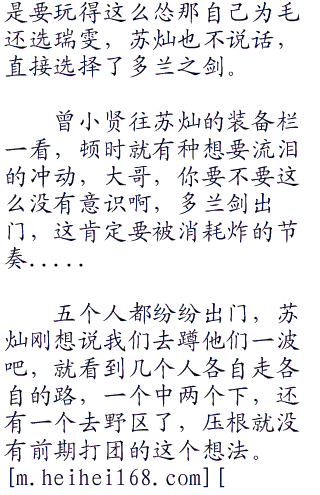 是要玩得这么怂那自己为毛
还选瑞雯，苏灿也不说话，
直接选择了多兰之剑。
曾小贤往苏灿的装备栏
一看，顿时就有种想要流泪
的冲动，大哥，你要不要这
么没有意识啊，多兰剑出
门，这肯定要被消耗炸的节
奏.....
五个人都纷纷出门，苏
灿刚想说我们去蹲他们一波
吧，就看到几个人各自走各
自的路，一个中两个下，还
有一个去野区了，压根就没
有前期打团的这个想法。
[m.heihei168.com][